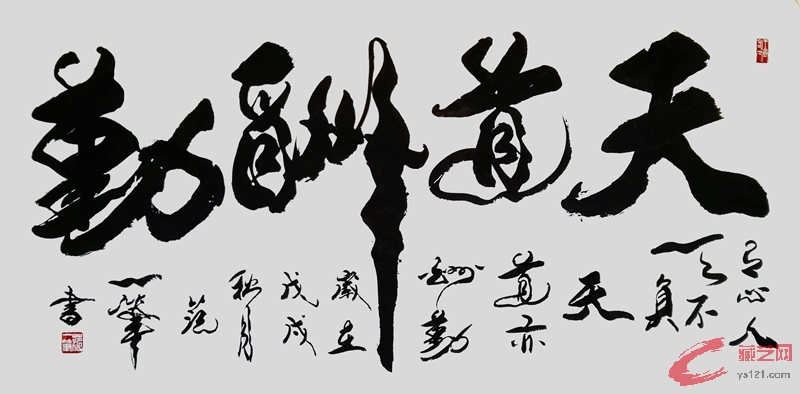 天道酬勤
有心人
天不
負
天
道亦
酬勤
歲在
戊戌
秋月
書
藏艺网
ys121.com